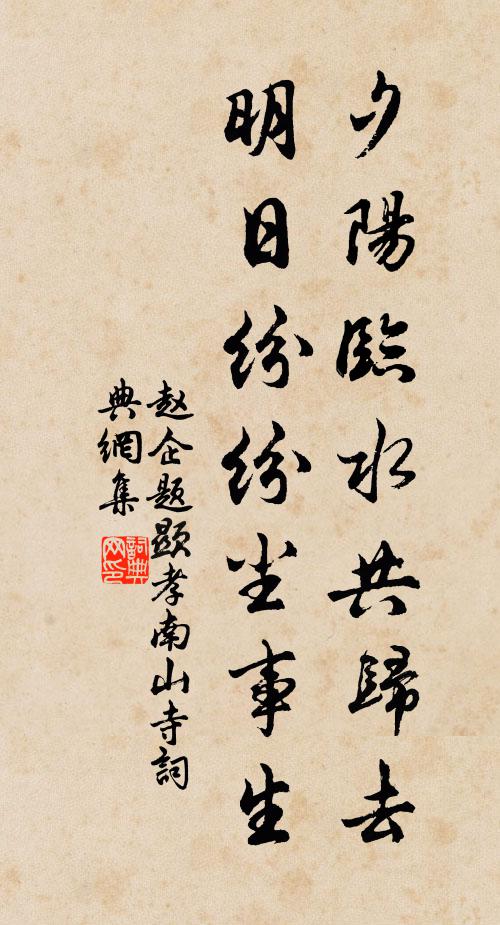 夕陽臨水共歸去
明日紛紛尘事生
赵企题顯孝南山寺詞
典網集
詞典
网印